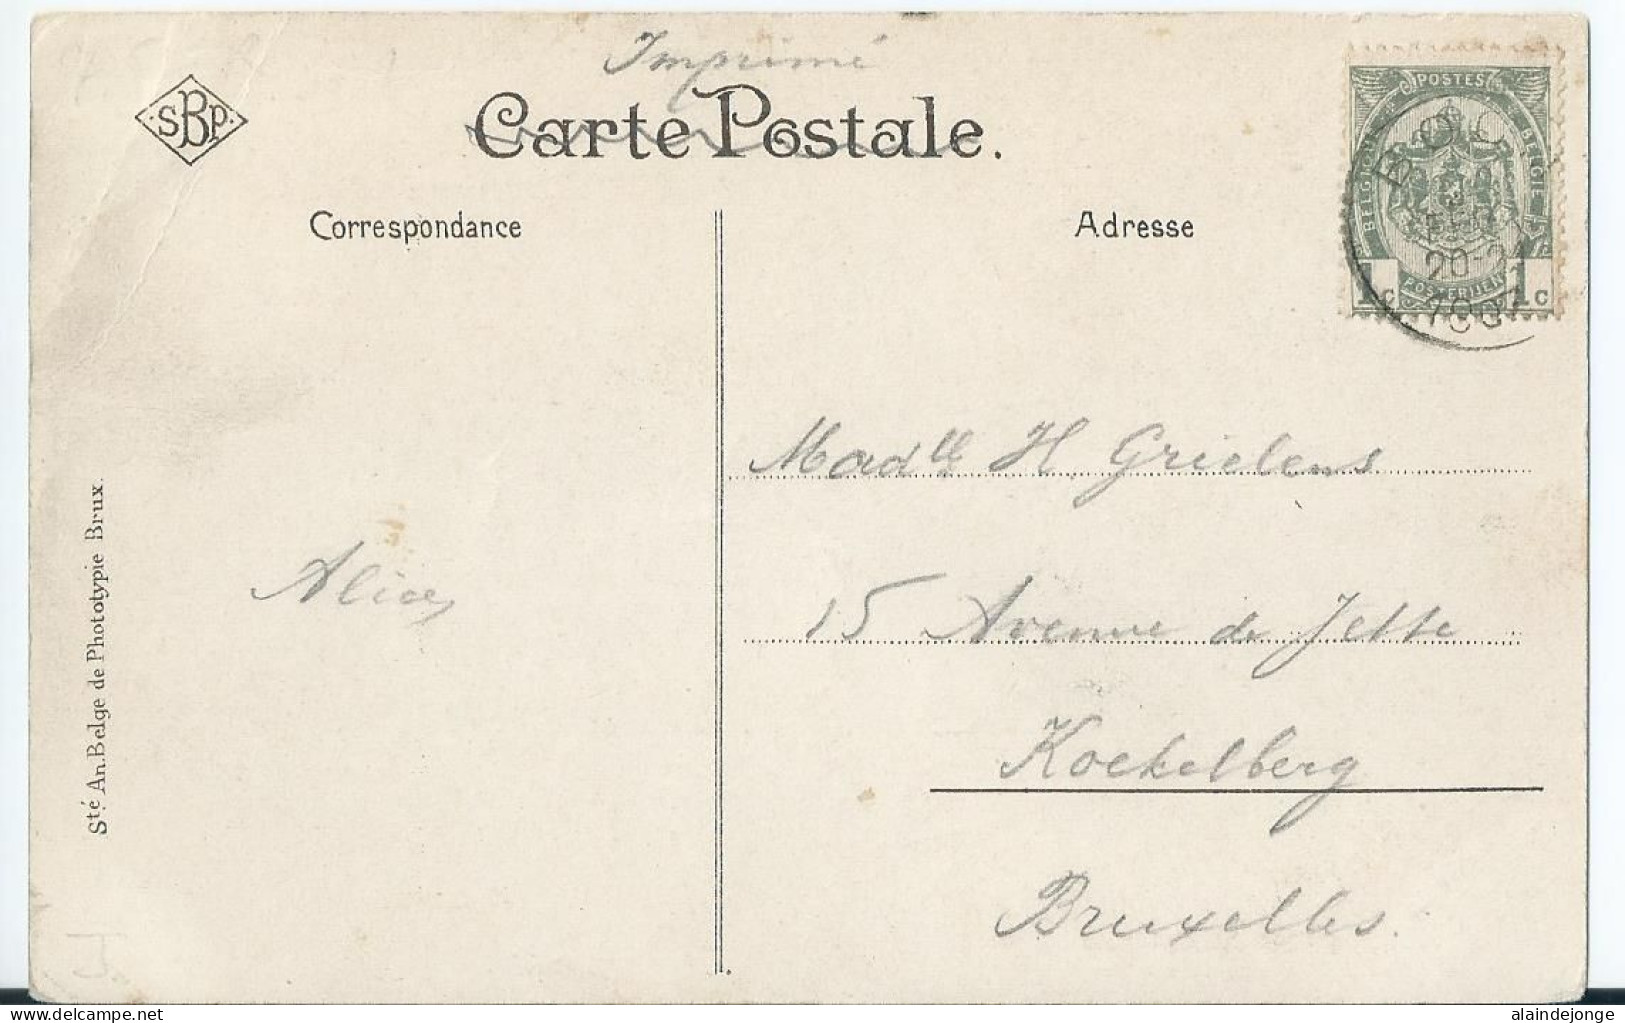 Imprimé
SBP
Carte Postale.
Correspondance
Adresse
POSTES
BELGIQUE
BELGIË
20-21
1907
1c
POSTERIJEN
1c
Madlle H Grielens
15 Avenue de Jette
Koekelberg
Bruxelles.
Alice
Sté An. Belge de Phototypie Brux.
delcampe.net
alaindejonge